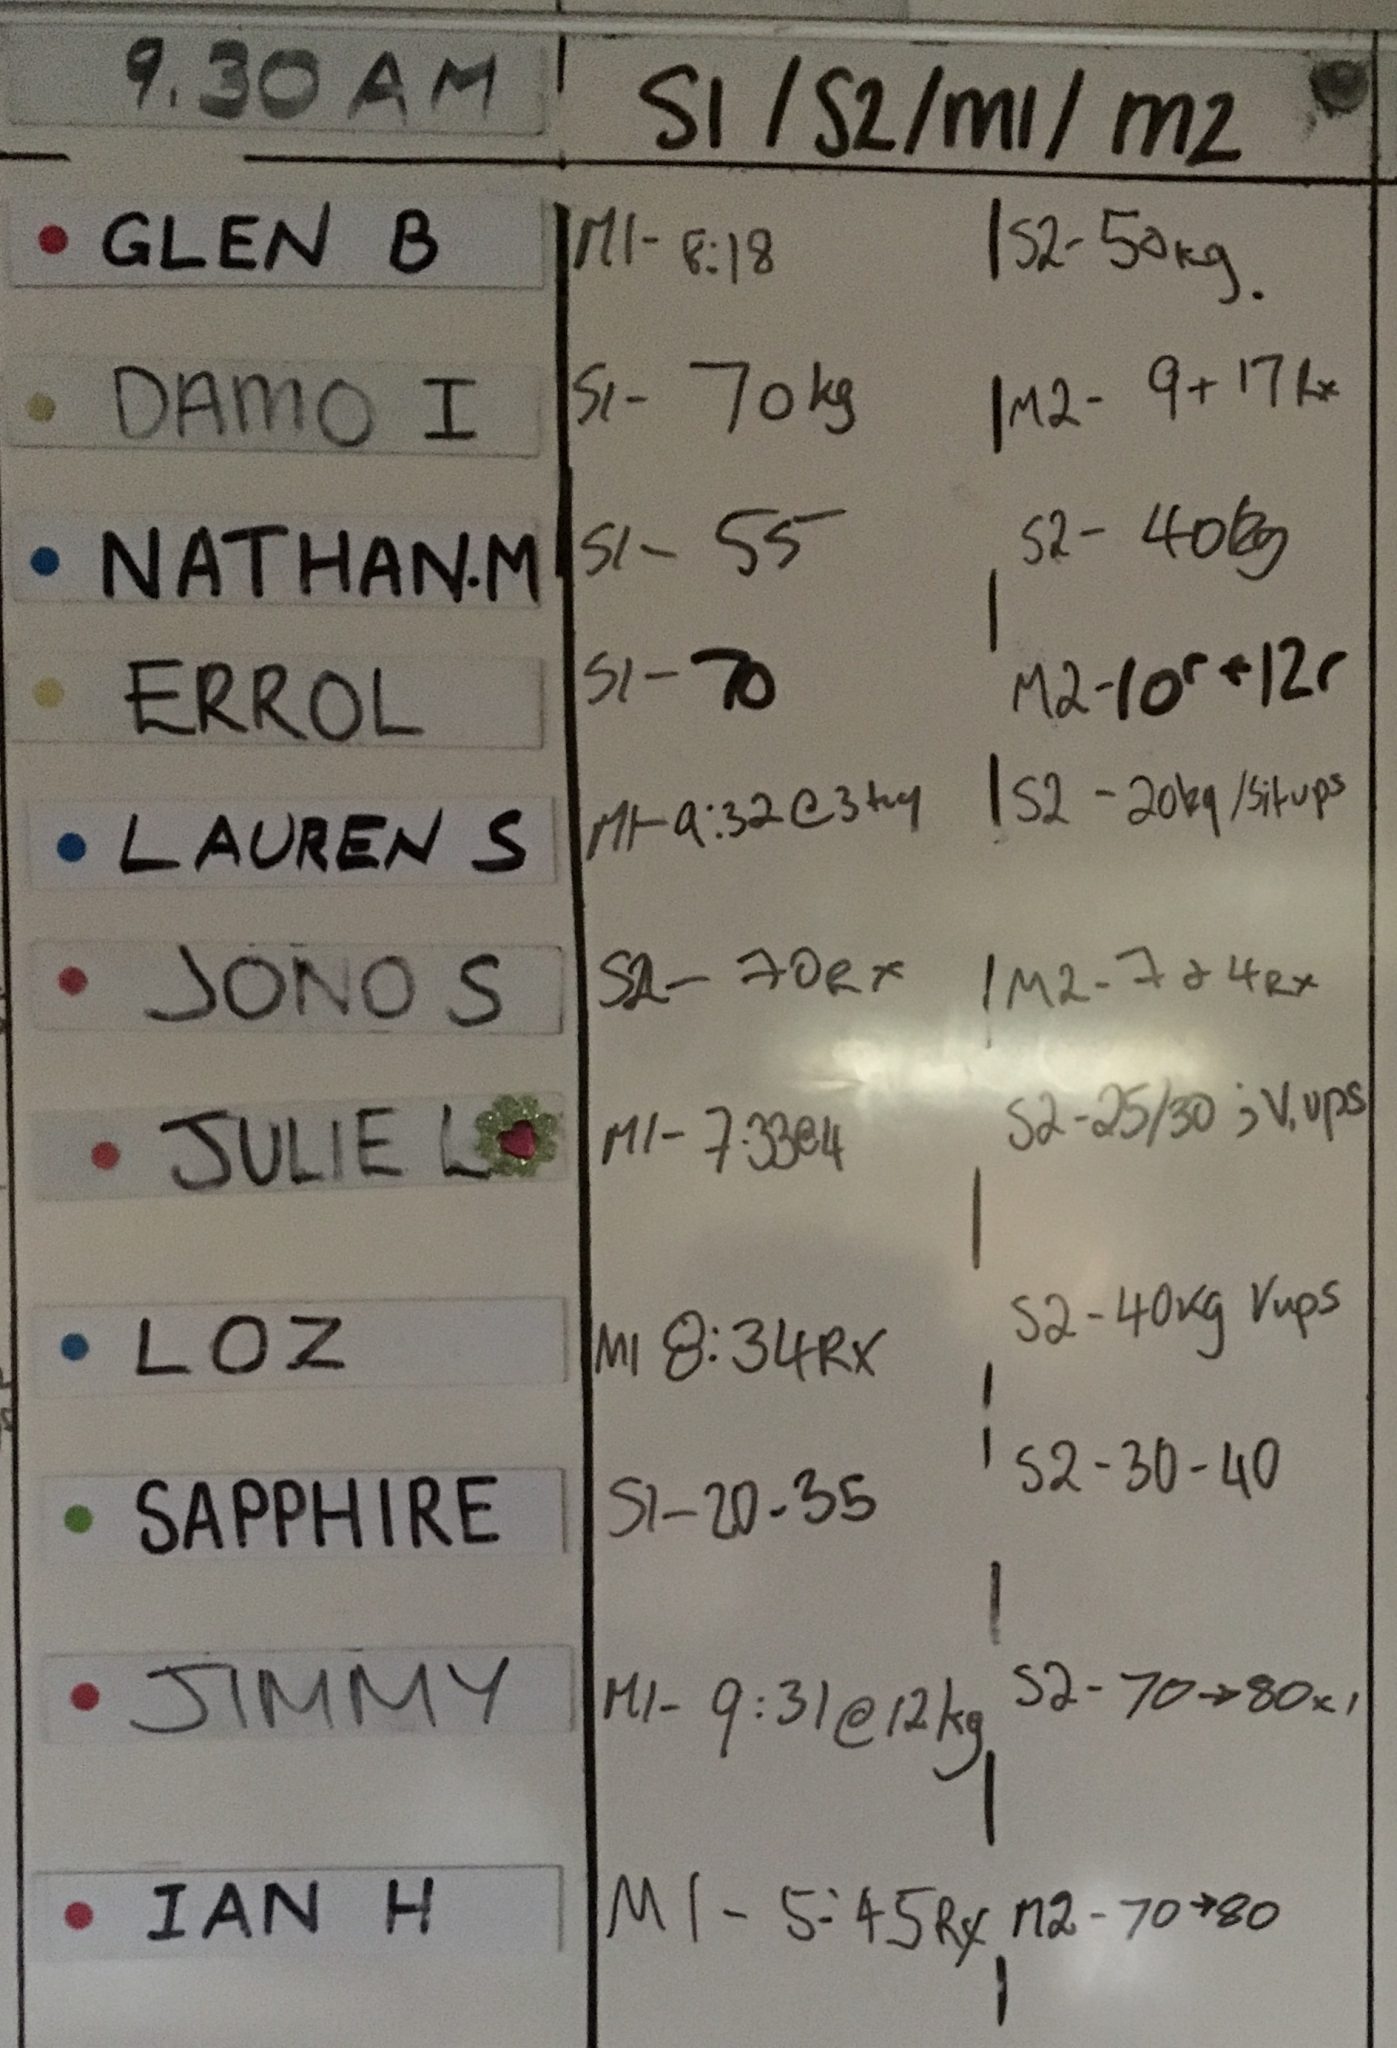 9.30 AM S1 / S2 / M1 / M2
GLEN B M1- 8:18 | S2- 50kg.
DAMO I S1- 70kg | M2- 9+17 Rx
NATHAN.M S1- 55 | S2- 40kg
ERROL S1- 70 M2-10r+12r
LAUREN S M1-9:32@3 | S2 -20kg /Situps
JONO S 70Rx | M2-7+4Rx
JULIE L M1- 7:33@4 S2-25/30 ; V.ups
LOZ M1 8:34RX | S2-40kg Vups
SAPPHIRE S1-20-35 S2-30-40
JIMMY M1- 9:31@12kg S2-70→80x1
IAN H M1- 5:45Rx M2-70→80